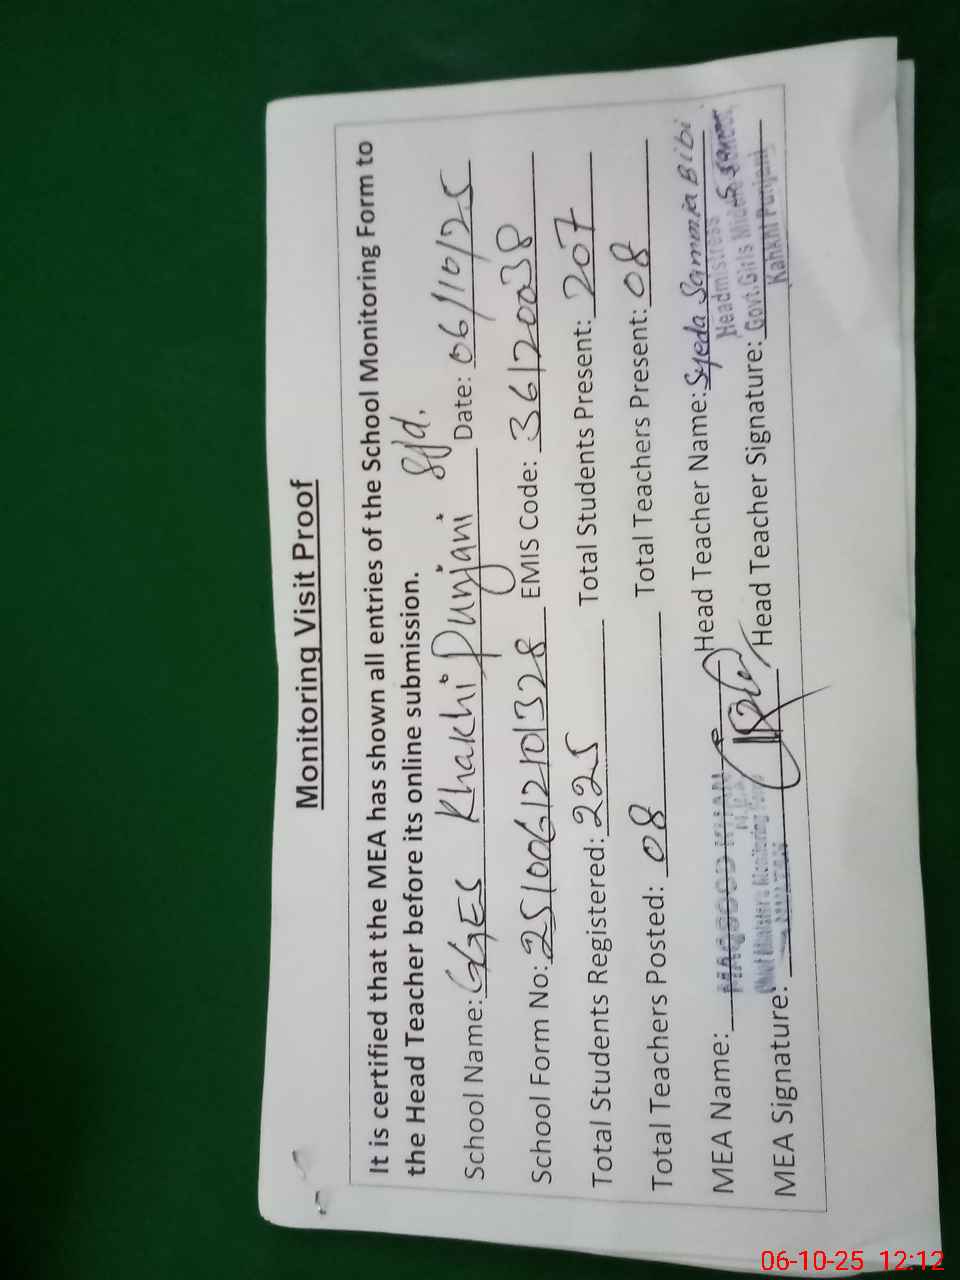 Monitoring Visit Proof
It is certified that the MEA has shown all entries of the School Monitoring Form to
the Head Teacher before its online submission.
School Name: GGES Khakhi Punjani Sjd. Date: 06/10/25
School Form No: 251006121101328 EMIS Code: 36120038
Total Students Registered: 225 Total Students Present: 207
Total Teachers Posted: 08 Total Teachers Present: 08
MEA Name: MAQSOOD KHAN Head Teacher Name: Syeda Sammia Bibi
Headmistress
MEA Signature: Chief Minister's Monitoring Force Head Teacher Signature: Govt. Girls
Kahkhi Punjani
06-10-25 12:12